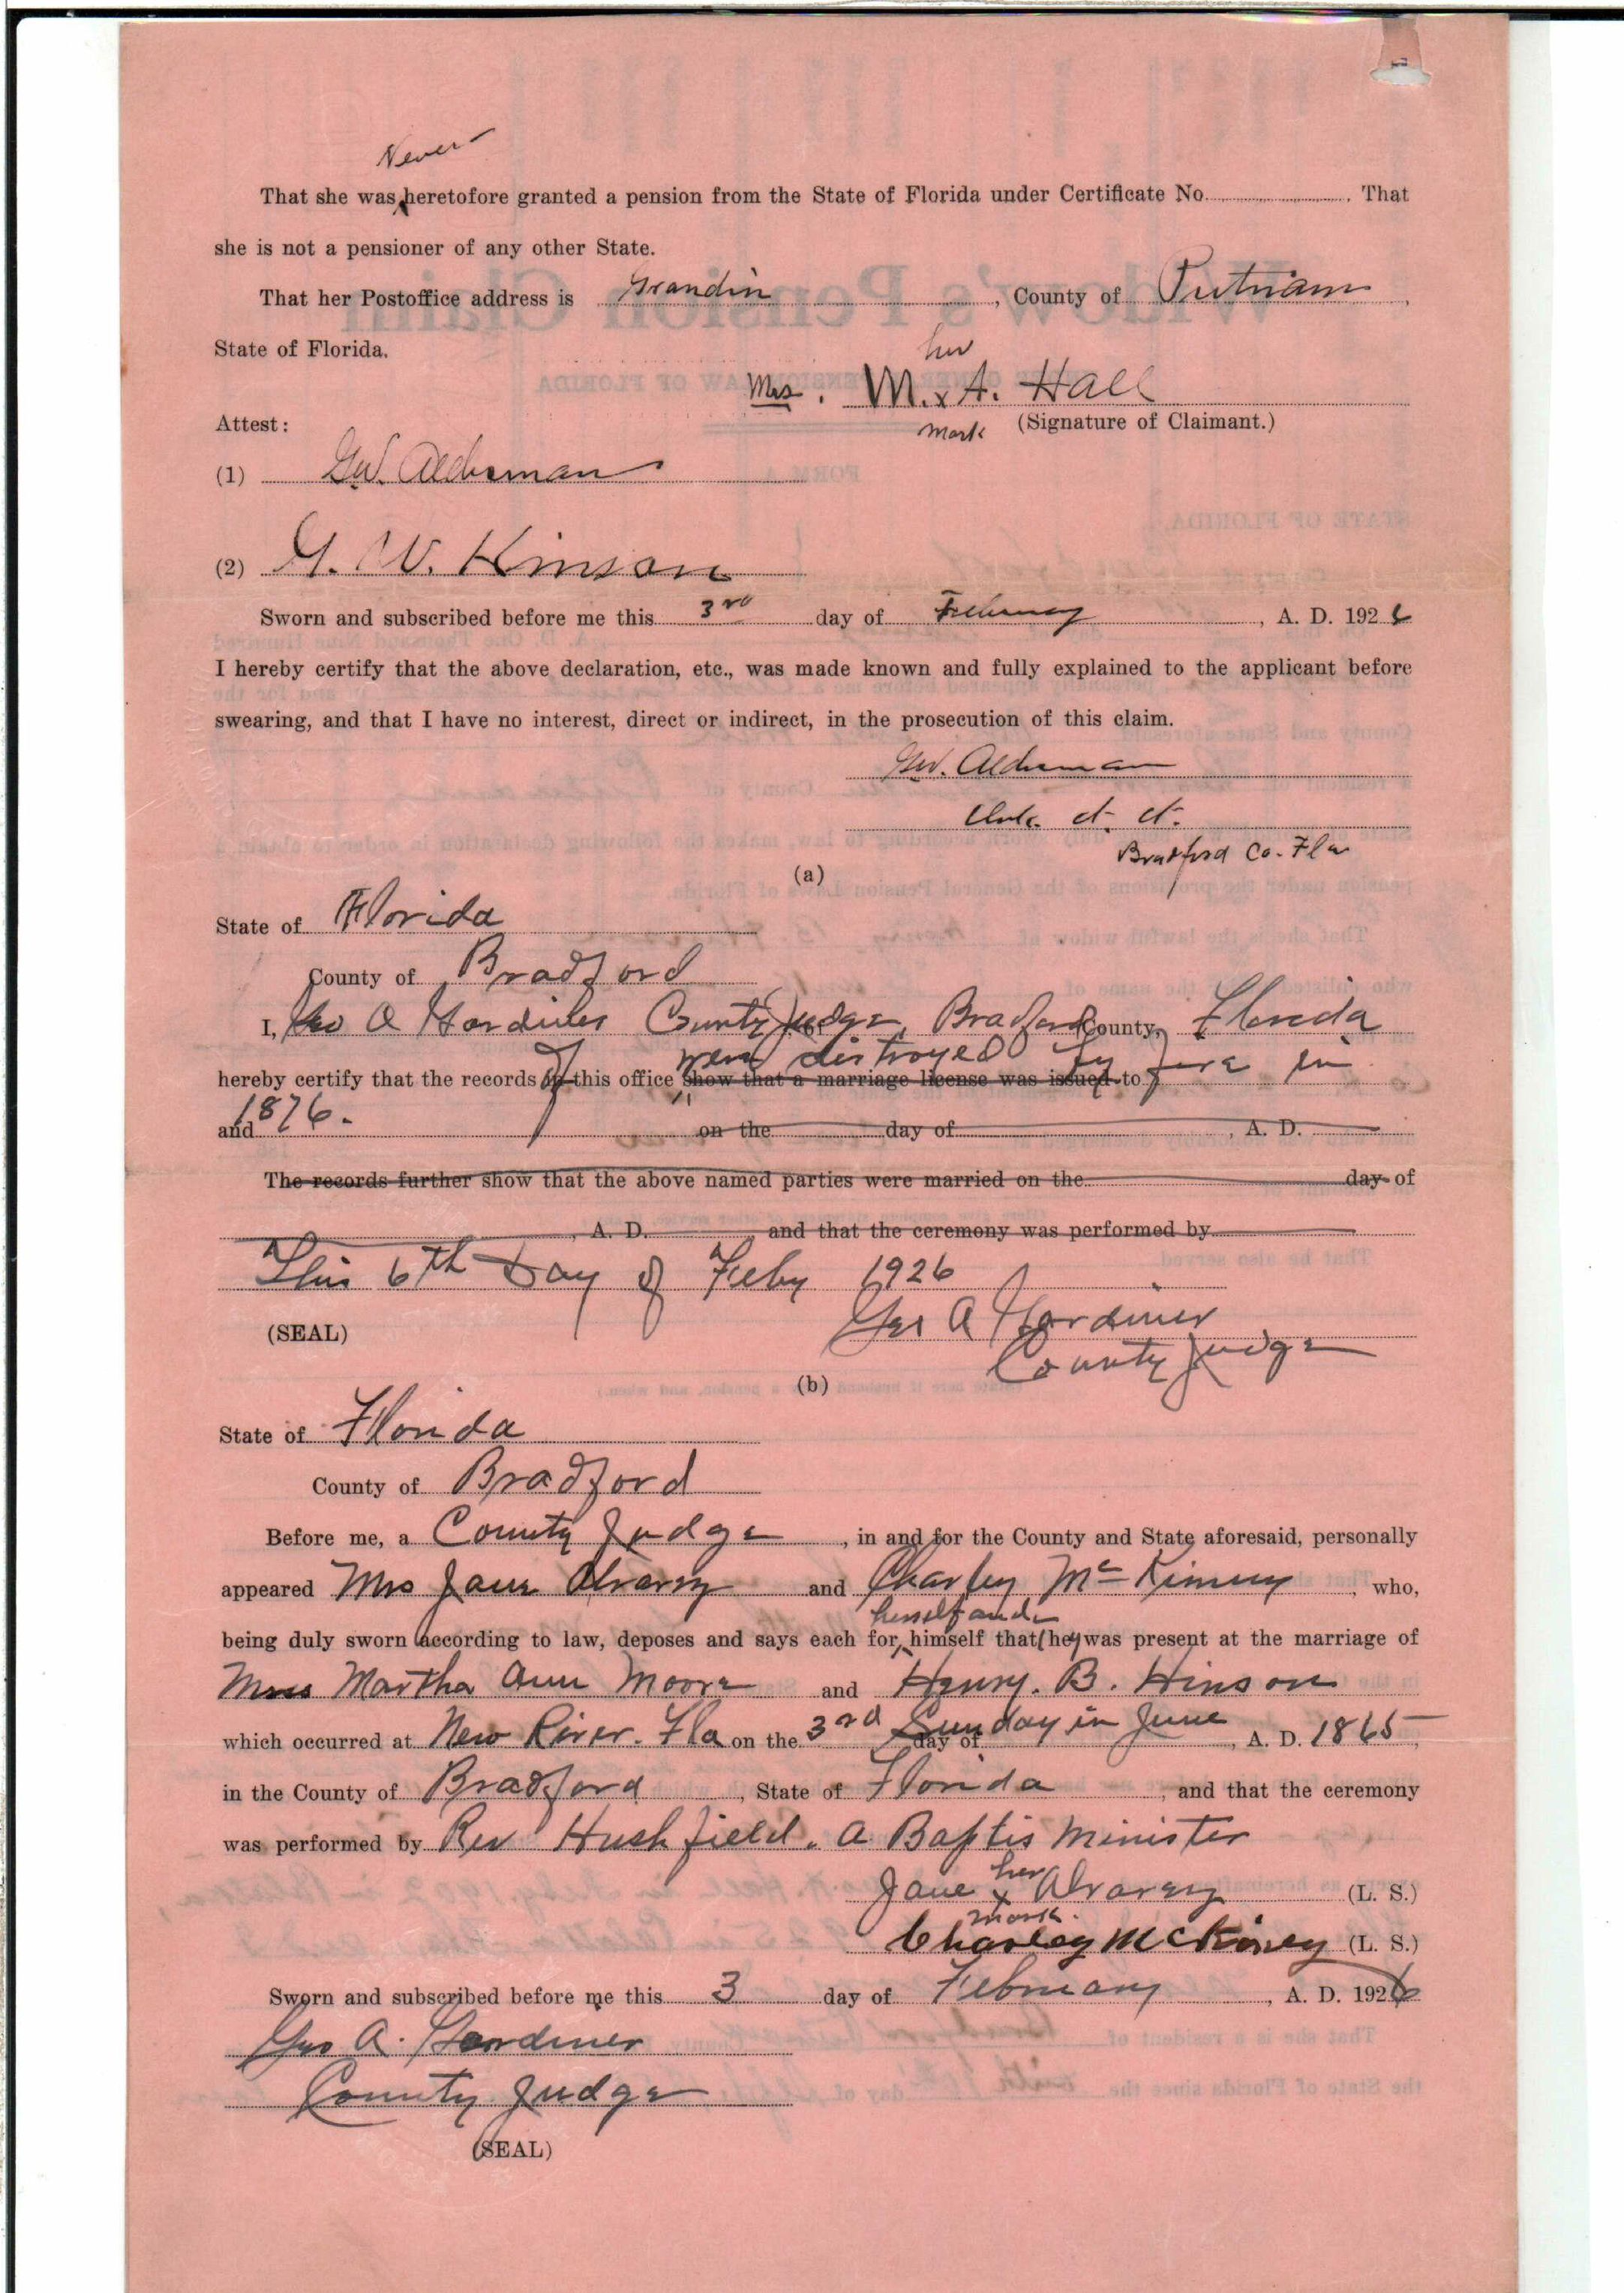 Never
That she was heretofore granted a pension from the State of Florida under Certificate No. . That
she is not a pensioner of any other State.
That her Postoffice address is Grandin , County of Putnam ,
State of Florida.
her
Mrs. M. x A. Hall
mark (Signature of Claimant.)
Attest:
(1) Geo. Alderman
(2) G. W. Hinson
Sworn and subscribed before me this 3rd day of February , A. D. 1926
I hereby certify that the above declaration, etc., was made known and fully explained to the applicant before
swearing, and that I have no interest, direct or indirect, in the prosecution of this claim.
Alderman
Clerk Ct. Ct.
Bradford Co. Fla
(a)
State of Florida
County of Bradford
I, Geo A Gardiner County Judge, Bradford County, Florida
were destroyed by fire in
hereby certify that the records of this office show that a marriage license was issued to
1876.
and on the day of , A. D.
The records further show that the above named parties were married on the day of
, A. D. , and that the ceremony was performed by
This 6th Day of Feby 1926
(SEAL) Geo A Gardiner
County Judge
(b)
State of Florida
County of Bradford
Before me, a County Judge , in and for the County and State aforesaid, personally
appeared Mrs Jane Alvarez and Charley McKinney , who,
herself and
being duly sworn according to law, deposes and says each for himself that (he) was present at the marriage of
Miss Martha Ann Moore and Henry. B. Hinson
which occurred at New River. Fla on the 3rd Sunday in June day of , A. D. 1865 ,
in the County of Bradford , State of Florida , and that the ceremony
was performed by Rev Hushfield. a Baptis Minister
her
Jane x Alvarez (L. S.)
mark.
Charley McKiney (L. S.)
Sworn and subscribed before me this 3 day of February , A. D. 1926
Geo A. Gardiner
County Judge
(SEAL)